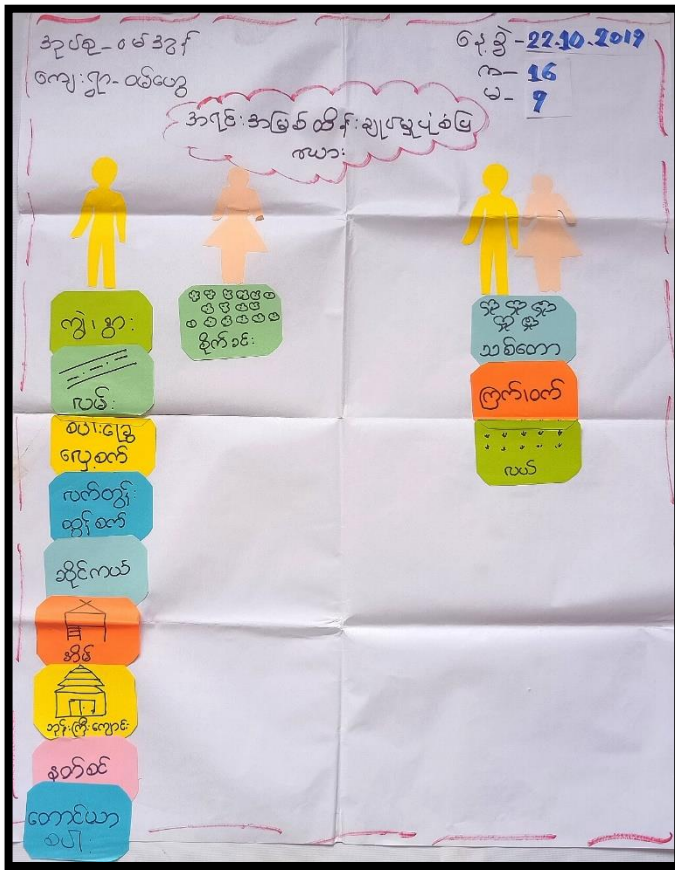 အုပ်စု-ဝမ်အွန်
ကျေးရွာ-ဝမ်ဟွေ
နေ့စွဲ-22.10.2019
က-16
မ-9
အရင်းအမြစ်ထိန်းချုပ်မှုပုံစံပြ
ဇယား
ကျွဲ၊နွား
လမ်း
စပါးခြွေ
လှေ့စက်
လက်တွန်း
ထွန်စက်
ဆိုင်ကယ်
အိမ်
ဘုန်းကြီးကျောင်း
နတ်စင်
တောင်ယာ
စပါး
စိုက်ခင်း
သစ်တော
ကြက်၊ဝက်
လယ်